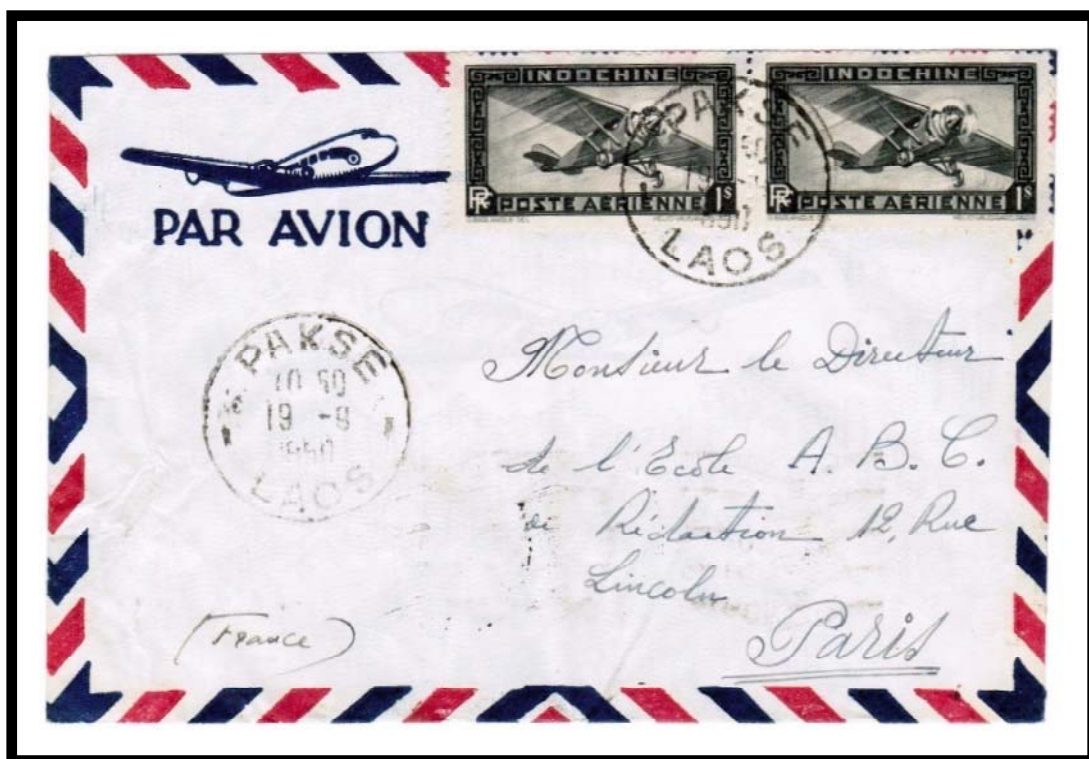 INDOCHINE
RF POSTE AÉRIENNE 1$
INDOCHINE
RF POSTE AÉRIENNE 1$
PAKSE
LAOS
PAR AVION
PAKSE
19 -8
1950
LAOS
Monsieur le Directeur
de l'Ecole A. B. C.
de Rédaction 12, Rue
Lincoln
Paris
(France)